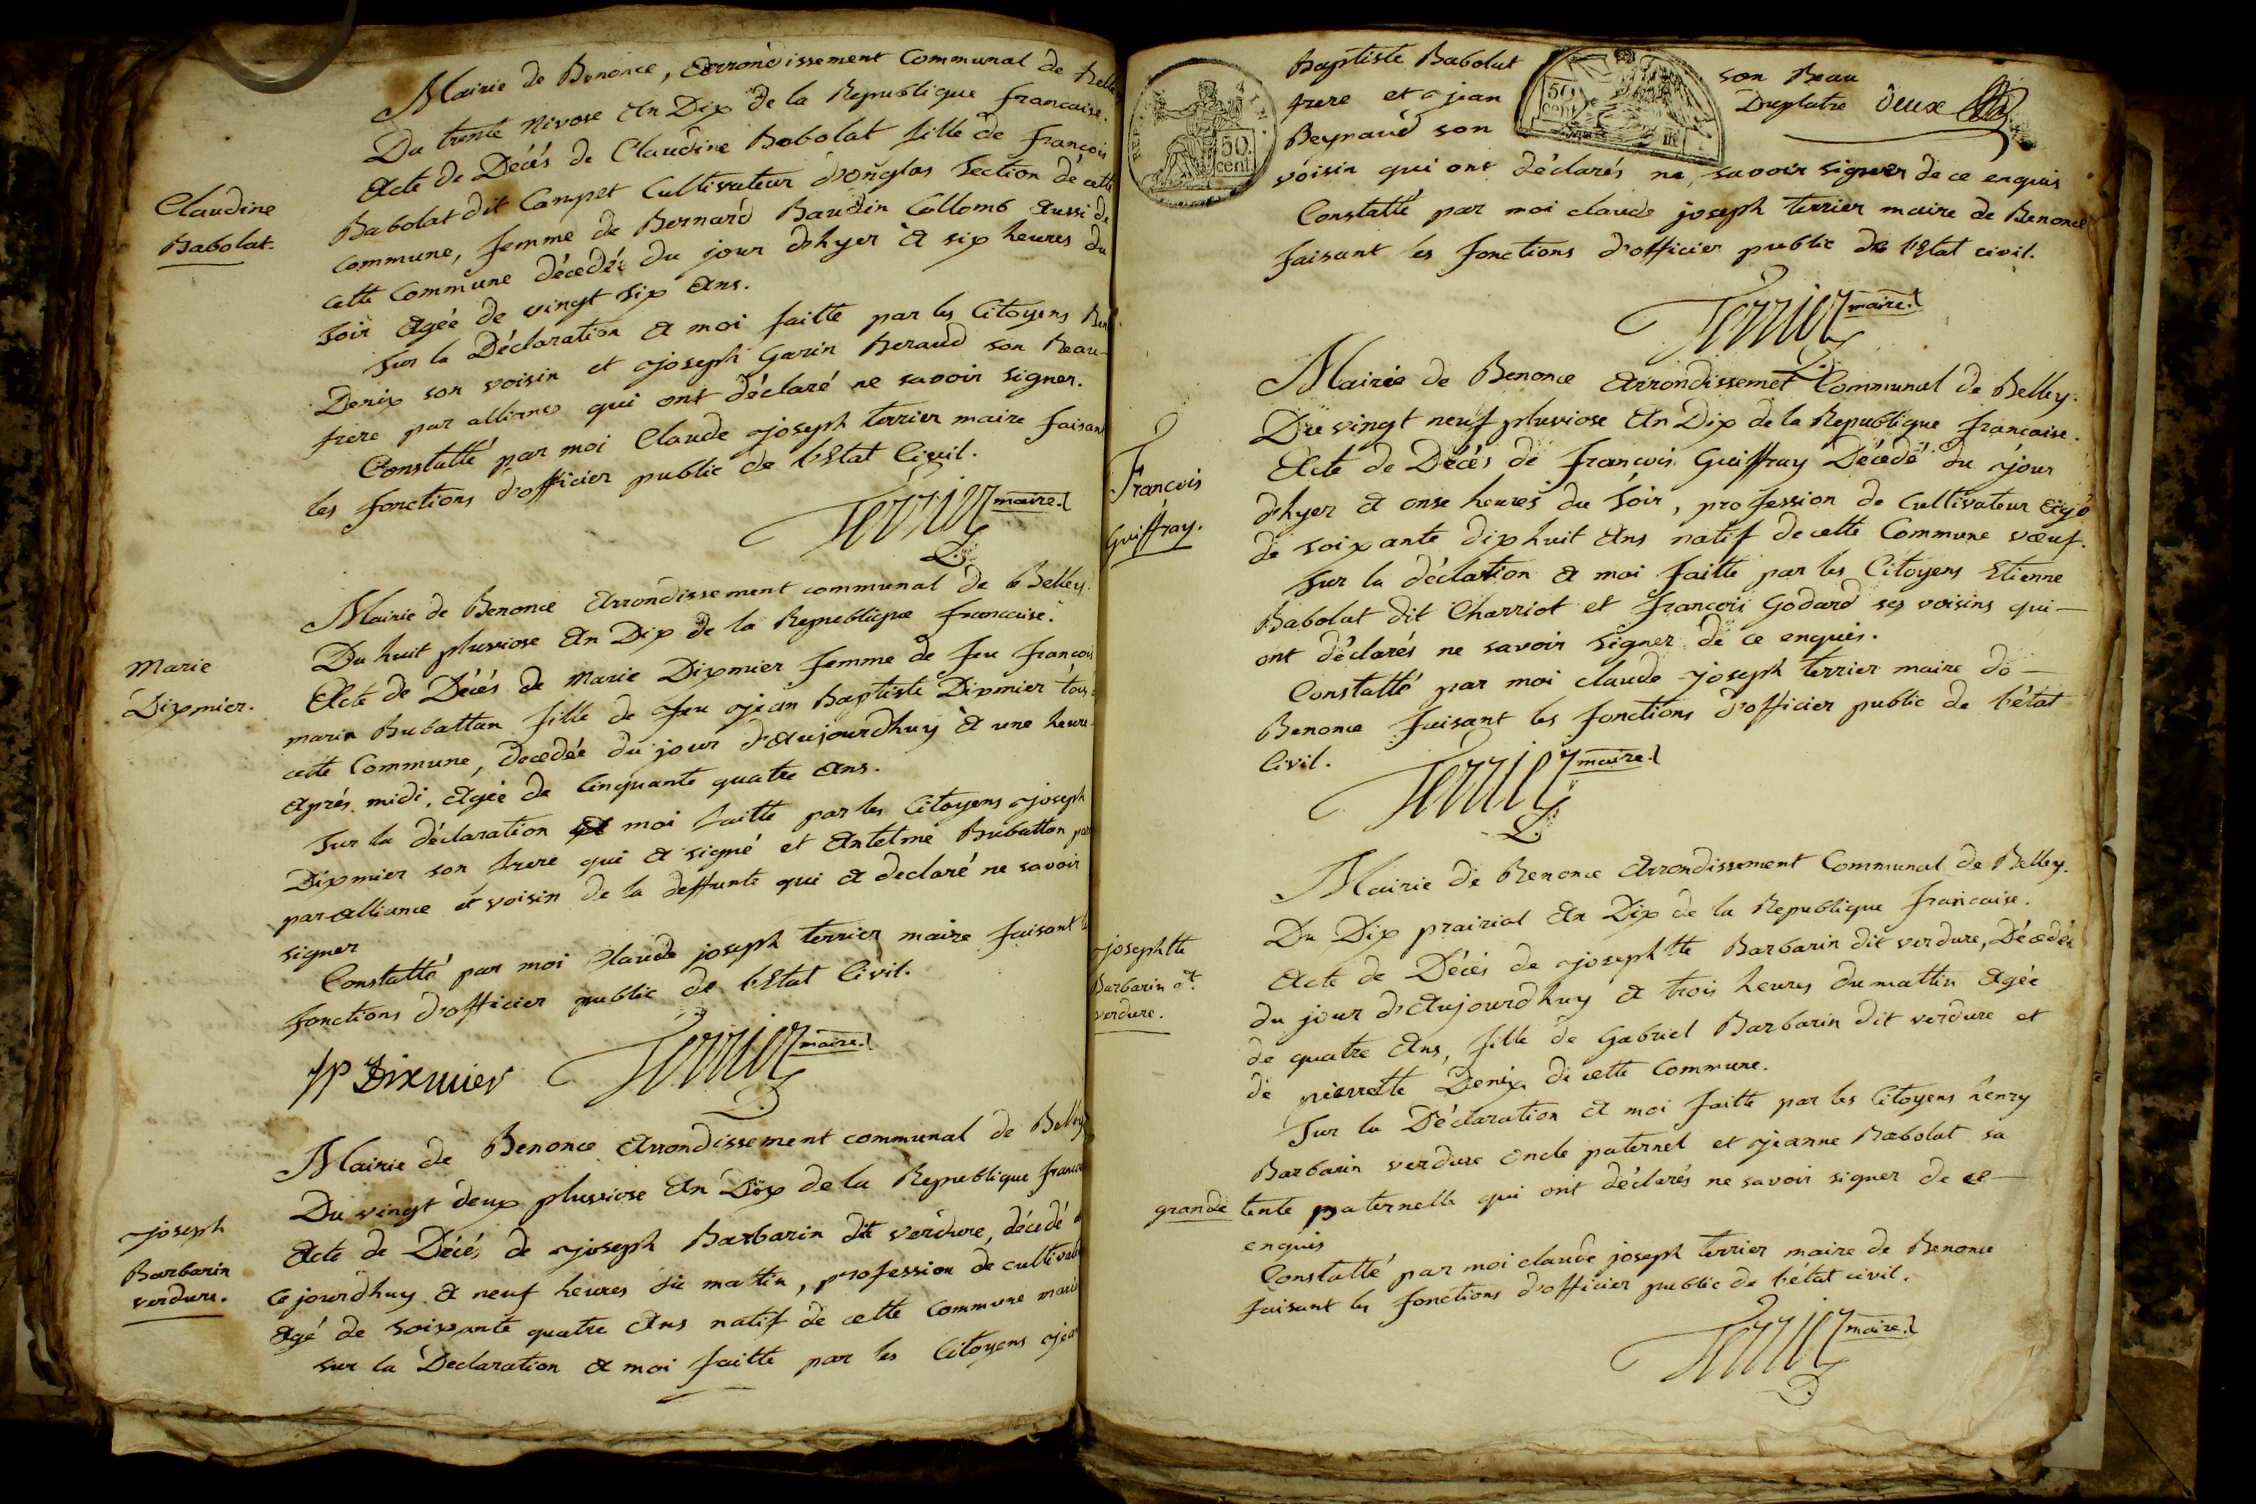 Mairie de Benonce, Arrondissement Communal de Belley
Du trente Nivose An Dix de la Republique francaise.
Acte de Décés de Claudine Babolat fille de francois
Claudine
Babolat.
Babolat dit Compet Cultivateur d'onglas Section de cette
commune, femme de Bernard Baudin Collomb Aussi de
cette Commune décedée du jour d'hyer A six heures du
soir Agée de vingt six Ans.
Sur la Déclaration A moi faitte par les Citoyens
Denix son voisin et joseph Garin Beraud son Beau-
frere par alliance qui ont déclaré ne savoir signer.
Constatté par moi Claude joseph terrier maire faisant
les fonctions d'officier public de l'Etat Civil.
Terrier maire.
Mairie de Benonce Arrondissement communal de Belley.
Du huit pluviose An Dix de la Republique francaise.
Marie
Dixmier.
Acte de Décés de Marie Dixmier femme de feu francois
marin Bubattan fille de feu jean Baptiste Dixmier tous
cette Commune, Decedée du jour d'Aujourdhuy A une heure
Aprés midi, Agée de Cinquante quatre Ans.
Sur la déclaration A moi faitte par les Citoyens joseph
Dixmier son frere qui A signé et Antelme Bubatton
par Alliance et voisin de la deffunte qui A declaré ne savoir
signer
Constatté par moi Claude joseph terrier maire faisant
fonctions d'officier public de l'Etat Civil.
JP Dixmier Terrier maire.
Mairie de Benonce Arrondissement communal de Belley
Du vingt deux pluviose An Dix de la Republique
joseph
Barbarin
verdure.
Acte de Décés de joseph Barbarin dit verdure, décedé
Cejourdhuy A neuf heures du mattin, profession de
Agé de soixante quatre Ans natif de cette Commune
Sur la Declaration A moi faitte par les Citoyens jean
REP. FRA.
50.
cent.
50.
cent.
Baptiste Babolat son Beau
frere et jean Duplatre Deux
Beynaud son
voisin qui ont déclarés ne savoir signer de ce enquis
Constatté par moi claude joseph terrier maire de Benonce
faisant les fonctions d'officier public de l'Etat civil.
Terrier maire.
Mairie de Benonce Arrondissemet Communal de Belley.
Du vingt neuf pluviose An Dix de la Republique francaise.
Francois
Guiffray.
Acte de Décés de francois Guiffray Décedé du jour
d'hyer A onse heures du soir, profession de Cultivateur Agé
de soixante dixhuit Ans natif de cette Commune vœuf.
Sur la déclartion A moi faitte par les Citoyens Etienne
Babolat dit Charriot et francois Godard ses voisins qui
ont déclarés ne savoir signer de ce enquis.
Constatté par moi claude joseph terrier maire de
Benonce faisant les fonctions d'officier public de l'état
Civil.
Terrier maire.
Mairie de Benonce Arrondissement Communal de Belley.
Du Dix prairial An Dix de la Republique francaise.
josephtte
Barbarin dt.
verdure.
Acte de Décés de josephtte Barbarin dit verdure, Décedée
du jour d'Aujourdhuy A trois heures du mattin Agée
de quatre Ans, fille de Gabriel Barbarin dit verdure et
de pierrette Denix de cette Commune.
Sur la Déclaration A moi faitte par les Citoyens henry
Barbarin verdure oncle paternel et jeanne Babolat sa
grande tente paternelle qui ont déclarés ne savoir signer de ce
enquis
Constatté par moi claude joseph terrier maire de Benonce
faisant les fonctions d'officier public de l'état civil.
Terrier maire.